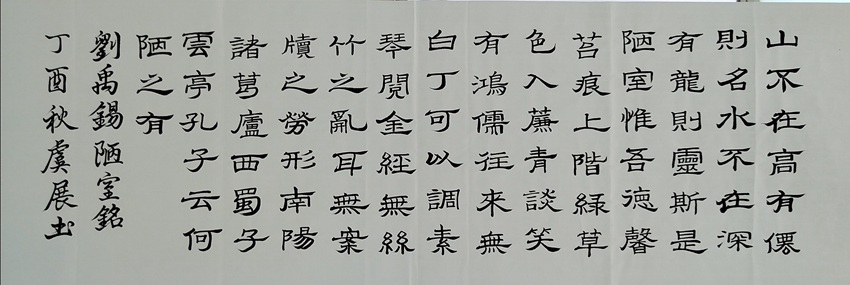 山不在高有僊
則名水不在深
有龍則靈斯是
陋室惟吾德馨
苔痕上階緑草
色入薕青談笑
有鴻儒往來無
白丁可以調素
琴閱金經無絲
竹之亂耳無案
牘之勞形南陽
諸葛廬西蜀子
雲亭孔子云何
陋之有
劉禹錫陋室銘
丁酉秋虞展圡